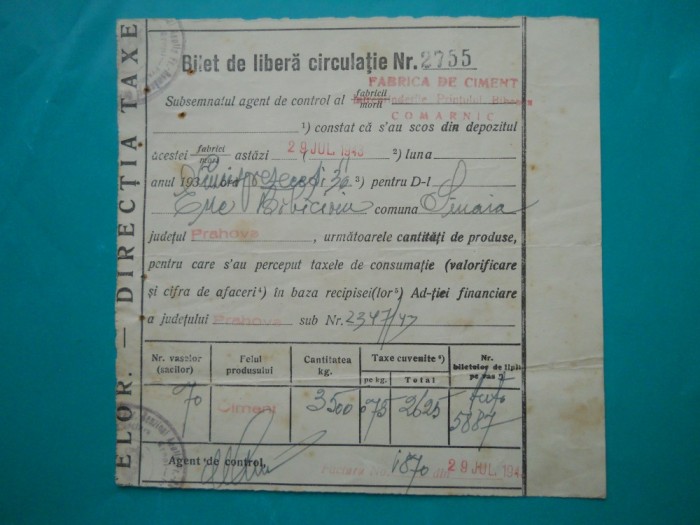 ELOR. — DIRECȚIA TAXE
Bilet de liberă circulație Nr. 2755
FABRICA DE CIMENT
Subsemnatul agent de control al fabricii
morii
COMARNIC
¹) constat că s'au scos din depozitul
acestei fabrici astăzi 29 JUL. 194 ²) luna
anul 193 ³) pentru D-l
comuna Sinaia
județul Prahova, următoarele cantități de produse,
pentru care s'au perceput taxele de consumație (valorificare
și cifra de afaceri⁴) în baza recipisei(lor⁵) Ad-ției financiare
a județului Prahova sub Nr. 2347/47
Nr. vaselor (sacilor) Felul produsului Cantitatea kg. Taxe cuvenite ⁶) Nr. biletelor de lipit pe vas ⁷)
pe kg. Total
70 Ciment 3500 075 2625 auto
5887
Agent de control, Factura No. 1870 din 29 JUL. 194